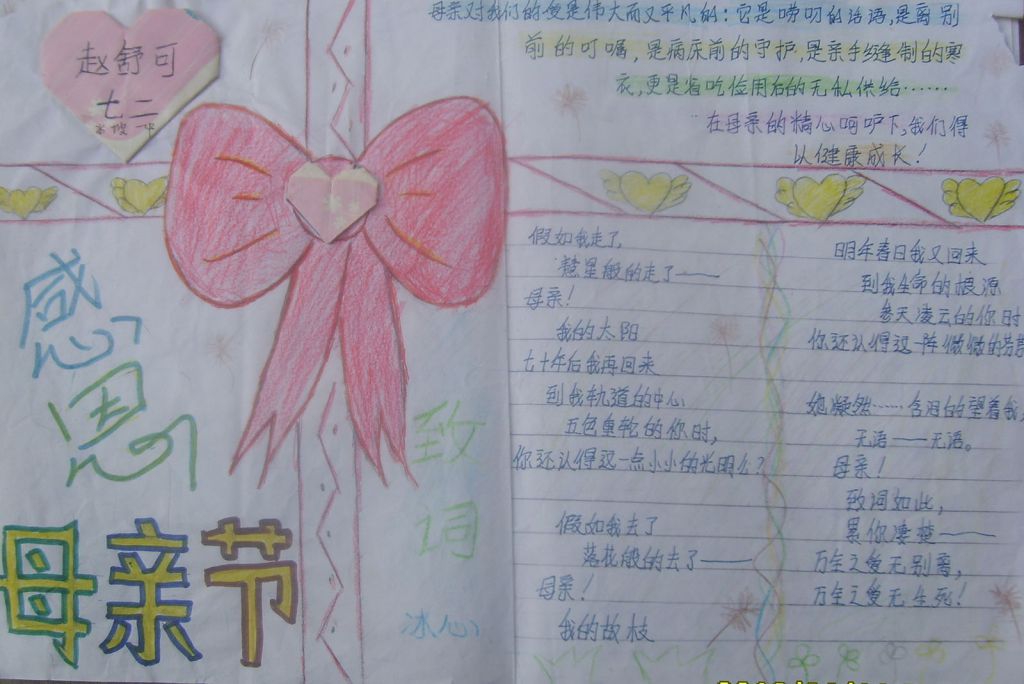 赵舒可
七二
母亲对我们的爱是伟大而又平凡的：它是唠叨的话语，是离别
前的叮嘱，是病床前的守护，是亲手缝制的寒
衣，更是省吃俭用后的无私供给……
在母亲的精心呵护下，我们得
以健康成长！
感
恩
母亲节
致
词
冰心
假如我走了，
彗星般的走了——
母亲！
我的太阳
七十年后我再回来
到我轨道的中心
五色重轮的你时，
你还认得这一点小小的光明么？
假如我去了
落花般的去了——
母亲！
我的故枝
明年春日我又回来
到我生命的根源
参天凌云的你时
你还认得这一阵微微的芬芳
她凝然……含泪的望着我，
无语——无语。
母亲！
致词如此，
累你凄楚——
万全之爱无别离，
万全之爱无生死！